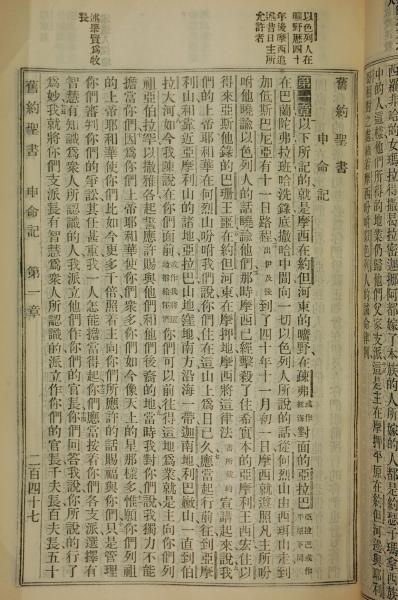 以色列人在
曠野歷四十
年後摩西追
述昔日主所
允許者
述舉賢爲牧
長
舊約聖書 申命記
第一章 以下所記的就是摩西在約但河東的曠野在疎弗對面的亞拉巴
在巴蘭陀弗拉班哈洗錄底撒哈中間向一切以色列人所說的話從何烈山由西珥山走到
加低斯巴尼亞有十一日路程出伊及後到了四十年十一月初一日摩西就遵照凡主所吩
咐他曉諭以色列人的話曉諭他們那時摩西已經擊殺了住希實本的亞摩利王西宏住以
得來亞斯他錄的巴珊王噩在約但河東摩押地摩西將這律法書所載的宣講起來說我
們的上帝耶和華在何烈山吩咐我們說你們住在這山上爲日已久應當起行前往到亞摩
利山和靠近亞摩利山的諸地亞拉巴山地窪地南方沿海一帶迦南地利巴嫩山一直到伯
拉大河如今我陳說在你們面前你們可以前往得這地爲業就是主向你們列
祖亞伯拉罕以撒雅各起誓應許賜與他們和他們後裔的地當時我對你們說我獨力不能
擔當你們因爲你們上帝耶和華使你們衆多你們如今像天上的星那樣多惟願你們列祖
的上帝耶和華使你們比如今更多千倍照着主向你們所應許的話賜福與你們只是管理
你們審判你們的爭訟其任甚重我一人怎能擔當得起你們應當按着你們各支派選擇有
智慧有知識爲衆人所認識的人我派立他們作你們的官長你們回答我說你所說的行了
爲妙我就將你們支派長有智慧爲衆人所認識的派立作你們的官長千夫長百夫長五十
舊約聖書 申命記 第一章 二百四十七